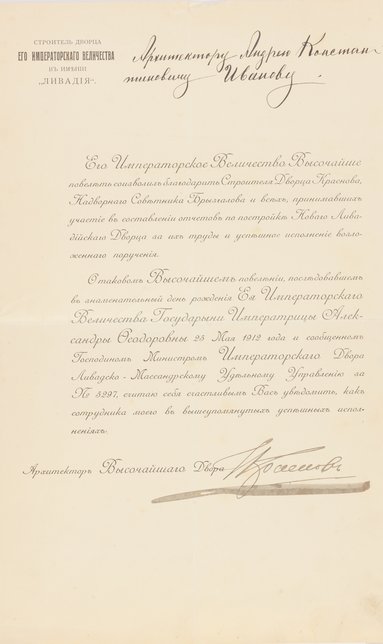 СТРОИТЕЛЬ ДВОРЦА
ЕГО ИМПЕРАТОРСКАГО ВЕЛИЧЕСТВА
ВЪ ИМѢНІИ
„ЛИВАДІЯ“.
Архитектору Андрею Констан-
тиновичу Иванову.
Его Императорское Величество Высочайше
повелѣть соизволилъ благодарить Строителя Дворца Краснова,
Надворнаго Совѣтника Брызгалова и всѣхъ, принимавшихъ
участіе въ составленіи отчетовъ по постройкѣ Новаго Лива-
дійскаго Дворца за ихъ труды и успѣшное исполненіе возло-
женнаго порученія.
О таковомъ Высочайшемъ повелѣніи, послѣдовавшемъ
въ знаменательный день рожденія Ея Императорскаго
Величества Государыни Императрицы Алек-
сандры Ѳеодоровны 25 Мая 1912 года и сообщенномъ
Господиномъ Министромъ Императорскаго Двора
Ливадско-Массандрскому Удѣльному Управленію за
№ 5297, считаю себя счастливымъ Васъ увѣдомить, какъ
сотрудника моего въ вышеупомянутыхъ успѣшныхъ испол-
неніяхъ.
Архитекторъ Высочайшаго Двора